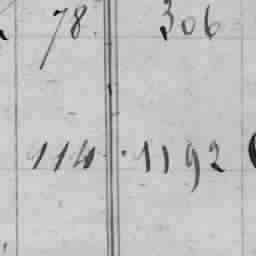 78. 306
114. 1192